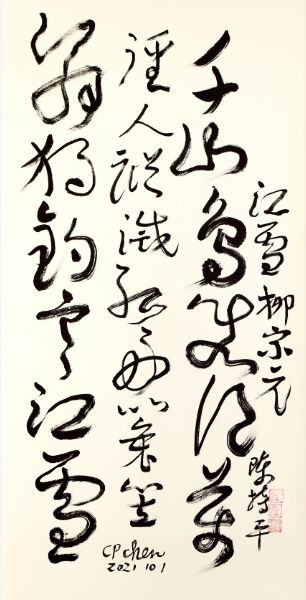 江雪 柳宗元
千山鳥飛絕萬
徑人蹤滅孤舟蓑笠
翁獨釣寒江雪
陳持平
CP chen
2021.10.1